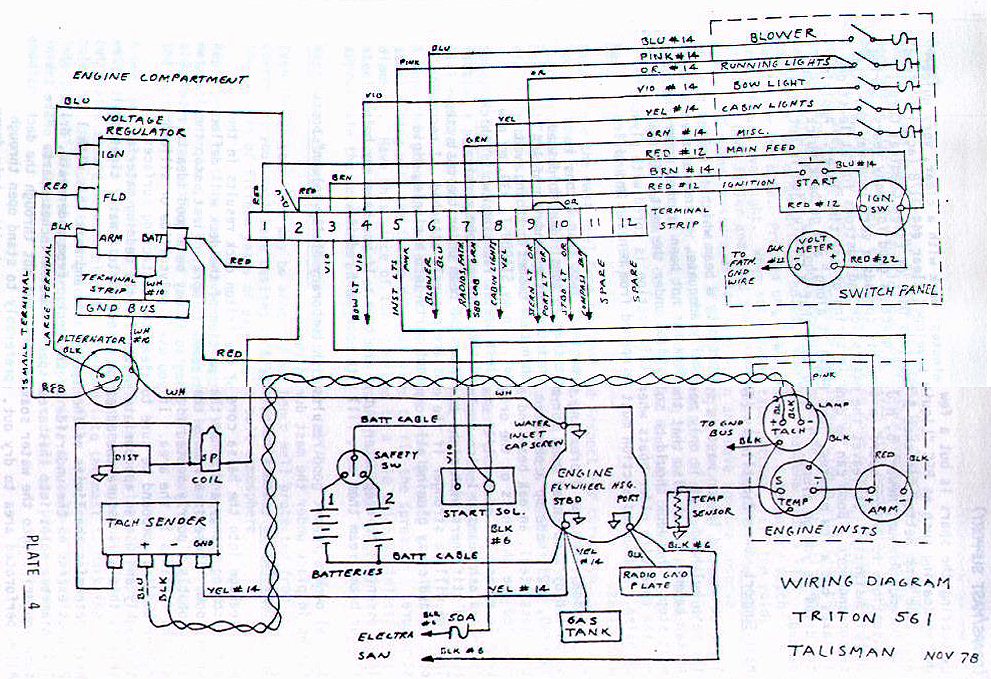 ENGINE COMPARTMENT
BLU
VOLTAGE
REGULATOR
IGN
RED
FLD
BLK
ARM
BATT
TERMINAL
STRIP
WH
#10
GND BUS
RED
SMALL TERMINAL
LARGE TERMINAL
ALTERNATOR
BLK
WH
#10
RED
WH
RED
BLU
PINK
OR
VIO
YEL
GRN
BRN
RED
RED
OR
BLU #14
PINK #14
OR #14
VIO #14
YEL #14
GRN #14
RED #12
BRN #14
RED #12
BLOWER
RUNNING LIGHTS
BOW LIGHT
CABIN LIGHTS
MISC.
MAIN FEED
IGNITION
START
BLU #14
RED #12
IGN.
SW
VOLT
METER
- +
BLK
RED #22
TO
FATH.
GND
WIRE
SWITCH PANEL
1 2 3 4 5 6 7 8 9 10 11 12
TERMINAL
STRIP
VIO
BOW LT VIO
INST LTS
PNK
BLOWER
BLU
RADIOS, FATH
SBD CAB GRN
CABIN LIGHTS
YEL
STERN LT OR
PORT LT OR
STBD LT OR
COMPASS OR
SPARE
SPARE
PINK
LAMP
BLU
BLK
TACH
TO GND
BUS
BLK
BLK
S
TEMP
I
RED
BLK
+ -
AMM
ENGINE INSTS
TEMP
SENSOR
BATT CABLE
SAFETY
SW
1 2
BATTERIES
BATT CABLE
VIO
START SOL.
BLK
#6
WH
WATER
INLET
CAPSCREW
ENGINE
FLYWHEEL HSG.
STBD PORT
YEL
#14
BLK
BLK #6
RADIO GND
PLATE
GAS
TANK
DIST
SP
COIL
TACH SENDER
+ - GND
BLU
BLK
YEL #14
YEL #14
BLK
50A
ELECTRA
SAN
BLK #6
WIRING DIAGRAM
TRITON 561
TALISMAN
NOV 78
PLATE 4